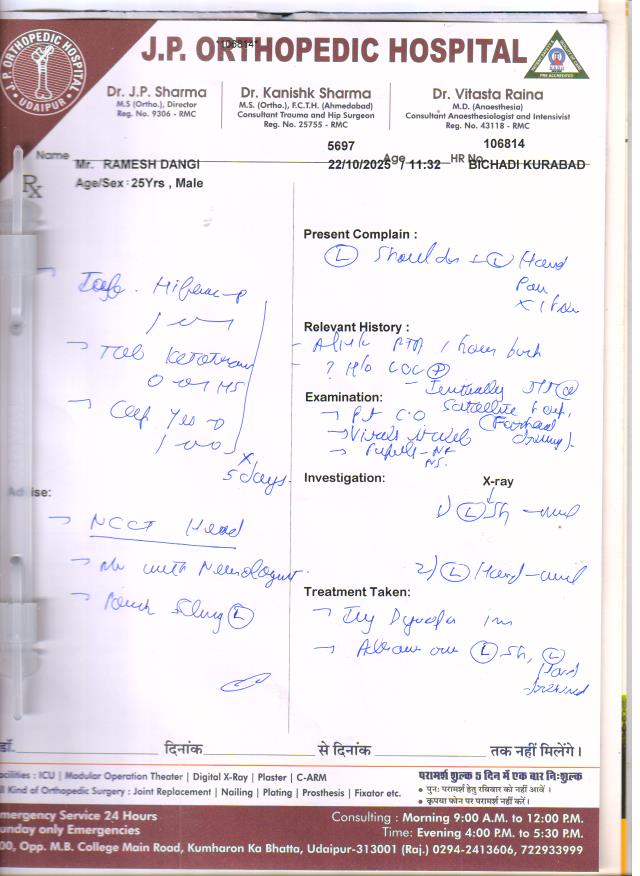 J.P. ORTHOPEDIC HOSPITAL
UDAIPUR
"106814"
J.P. ORTHOPEDIC HOSPITAL
PRE ACCREDITED
Dr. J.P. Sharma
M.S (Ortho.), Director
Reg. No. 9306 - RMC
Dr. Kanishk Sharma
M.S. (Ortho.), F.C.T.H. (Ahmedabad)
Consultant Trauma and Hip Surgeon
Reg. No. 25755 - RMC
Dr. Vitasta Raina
M.D. (Anaesthesia)
Consultant Anaesthesiologist and Intensivist
Reg. No. 43118 - RMC
5697 106814
Name Mr. RAMESH DANGI 22/10/2025 / 11:32 Age HR No. BICHADI KURABAD
Rx
Age/Sex : 25Yrs , Male
Present Complain :
L Shoulder + L Hand
Pain
Relevant History :
RTA 1 hour back
? H/o LOC
Examination:
Satellite
(Forehead
Pt C.O
Vitals
Pupils - NR
NS.
Investigation:
X-ray
1) L Sh
2) L Hand
Treatment Taken:
Inj im
L Sh, L
Hand
1
Tab
0 HS
Cap
1
x
5 days.
Advise:
NCCT Head
with Neurologist
Pouch Sling L
डॉ. दिनांक से दिनांक तक नहीं मिलेंगे।
acilities : ICU | Modular Operation Theater | Digital X-Ray | Plaster | C-ARM
ll Kind of Orthopedic Surgery : Joint Replacement | Nailing | Plating | Prosthesis | Fixator etc.
परामर्श शुल्क 5 दिन में एक बार निःशुल्क
• पुनः परामर्श हेतु रविवार को नहीं आवें ।
• कृपया फोन पर परामर्श नहीं करें।
mergency Service 24 Hours
unday only Emergencies
Consulting : Morning 9:00 A.M. to 12:00 P.M.
Time: Evening 4:00 P.M. to 5:30 P.M.
00, Opp. M.B. College Main Road, Kumharon Ka Bhatta, Udaipur-313001 (Raj.) 0294-2413606, 722933999